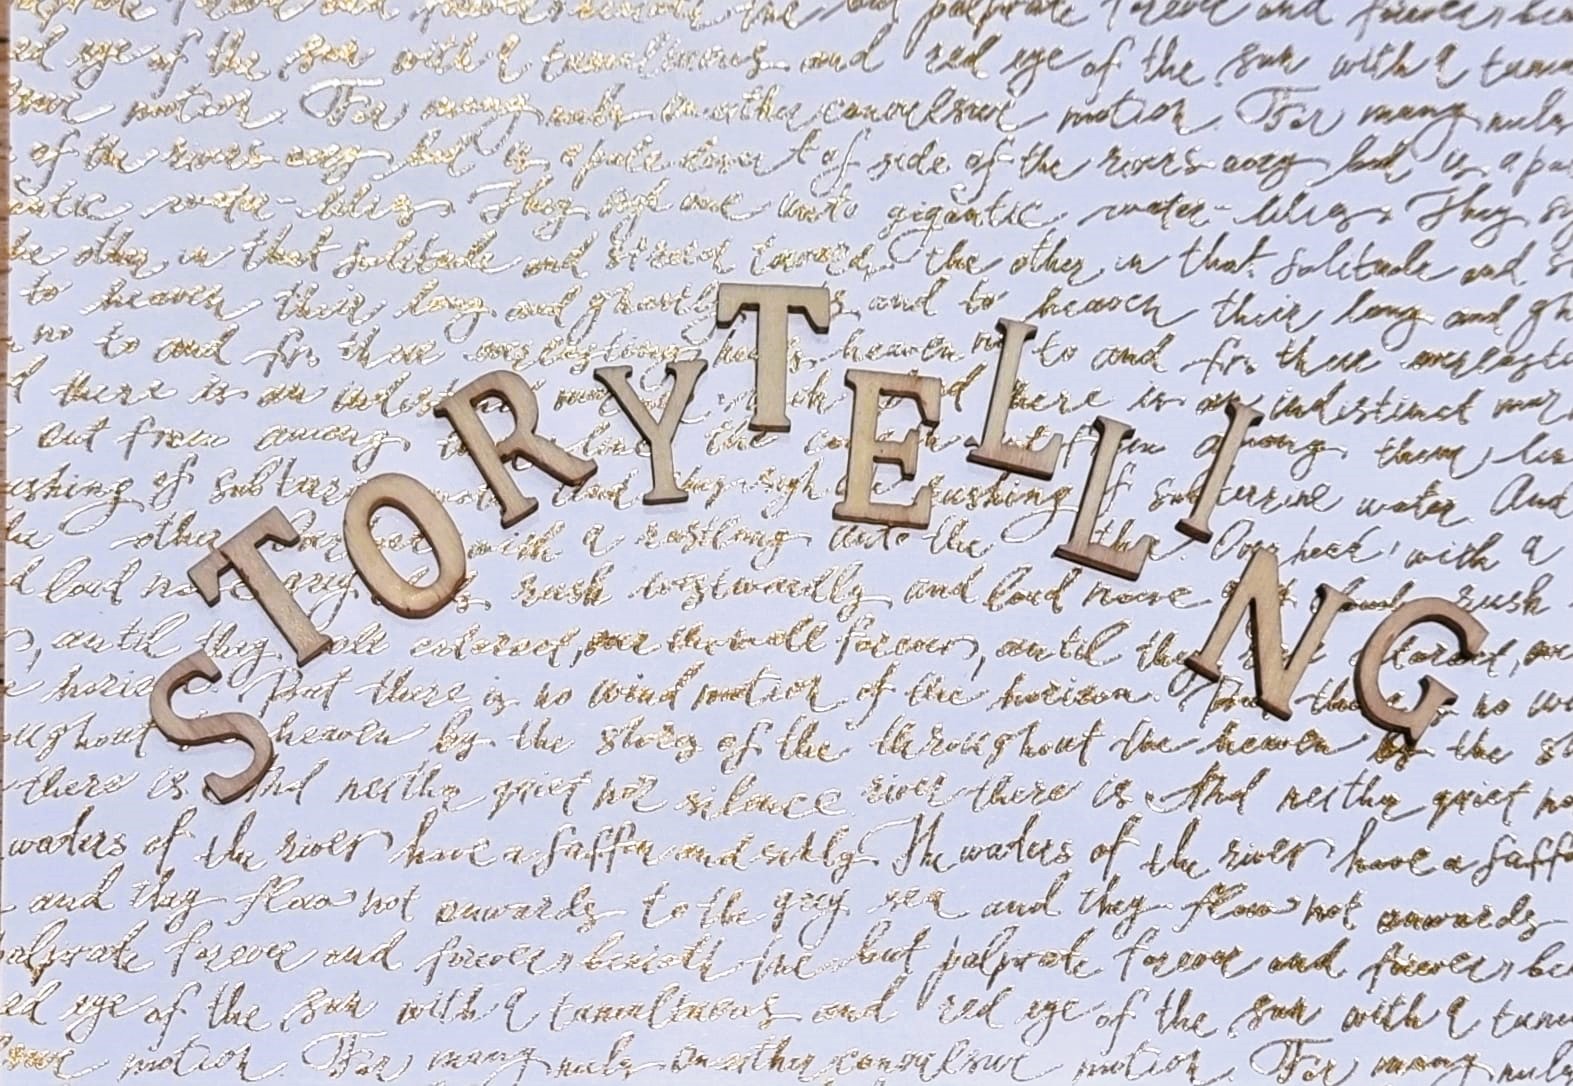 palpitate forever and forever be
ed eye of the sun with a tumultuous and red eye of the sun with a tum
motion. For many miles on either convulsive motion. For many miles
of the rivers oozy bed is a pale desert of side of the rivers oozy bed is a pa
water-lilies. They sigh one unto gigantic water-lilies. They
other in that solitude and stretch towards the other in that solitude and
to heaven their long and ghastly and to heaven their long and gh
no to and fro their everlasting heaven to and fro their
there is an there is an indistinct mur
out from among the among them
ushing of subterr rushing of subterrine water And
other with a unto the Over head with a
loud rush westwardly and loud noise rush
until they over the wall forever, until they
But there is no wind motion of the horizon. no
oughout heaven by the story of the throughout the heaven by the
there is And neither quiet nor silence river there is And neither quiet no
waters of the river have a saffron and sickly The waters of the river have a saff
and they flow not onwards to the grey sea and they flow not onwards
alpitate forever and forever beneath the but palpitate forever and forever be
ed eye of the sun with a tumultuous and red eye of the sun with a tum
motion. For many miles on either convulsive motion. For many miles
STORYTELLING